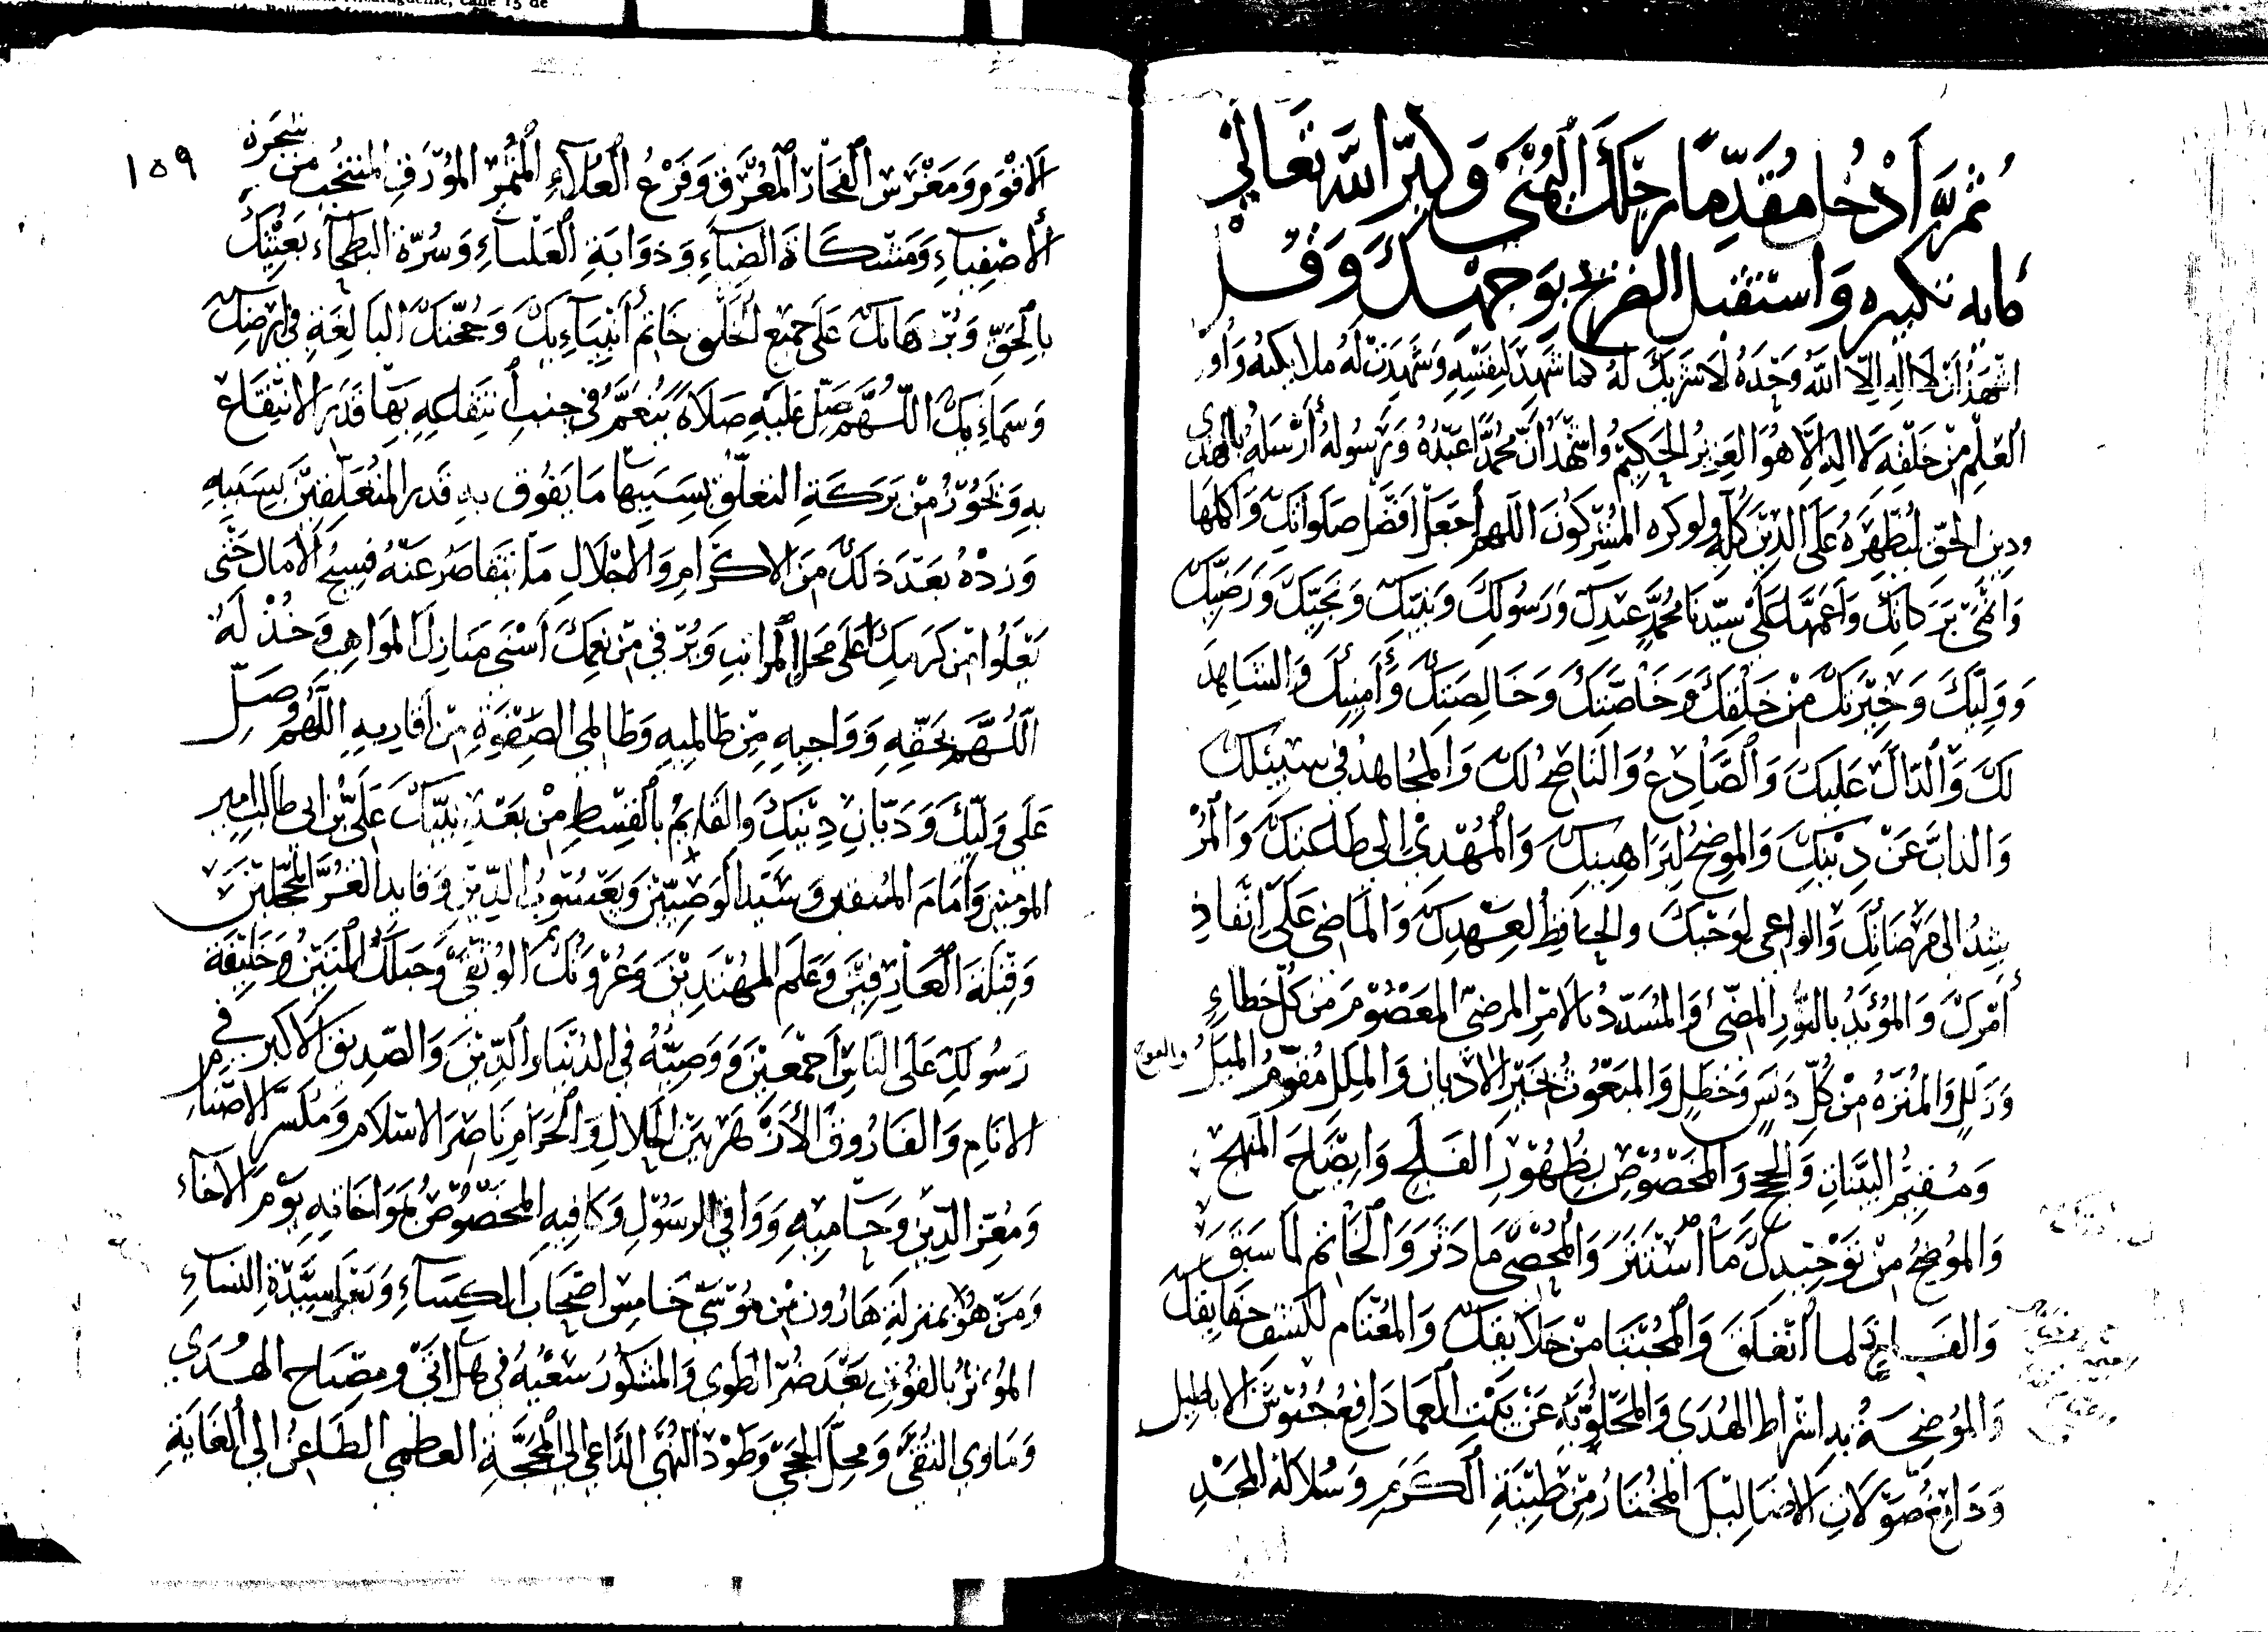 ثُمَّ أَدْخُل مُقَدِّمًا رِجْلَكَ الْيُمْنَى وَكَبِّرِ اللهَ تَعَالَى
مائه تكبيره وَاسْتَقْبِل الضريح بِوَجْهِكَ وَقُل
اشهَدُ أن لا اله إلا اللهُ وَحْدَهُ لا شَرِيكَ لَهُ كما شَهِدَ لِنَفْسِهِ وَشَهِدَتْ لَهُ ملائكته وَأولو
العِلْمِ مِنْ خَلْقِهِ لا اله الا هُوَ العَزِيزُ الحَكِيمُ واشْهَدُ انَّ محمدًا عَبْدُهُ وَرَسُولهُ أرْسَلهُ بالهُدى
ودين الحَقّ ليُظْهِرَهُ عَلَى الدِّيْنِ كُلِّهِ ولو كره المُشْرِكُونَ اللهم اجعَلْ افْضَل صَلَوَاتِكَ وَاكملَهَا
وَانْمَى بَرَكَاتِكَ وَاعَمَّهَا عَلَى سَيّدِنَا مُحَمَّدٍ عَبْدِكَ وَرَسُولِكَ وَنَبِيّكَ وَنَجِيِّكَ وَرَضِيِّكَ
وَوَلِيِّكَ وَخِيْرَتِكَ مِنْ خَلْقِكَ وَخَاصَّتِكَ وَخَالِصَتِكَ وَأَمِينِكَ وَالشَّاهِدِ
لَكَ وَالدَّالِّ عَلَيكَ وَالصَّادِعُ وَالنَّاصِحُ لَكَ وَالمُجَاهِدُ في سَبِيْلِكَ
وَالذابّ عَنْ دِيْنِكَ وَالمُوضِحُ لِبَرَاهِينِكَ وَالمُهْدِي إلى طَاعَتِكَ وَالمُرْ
شِدُ الى مَرْضَاتِكَ وَالوَاعي لِوَحْيِكَ والحَافِظُ لعَهْدِكَ وَالمَاضِي عَلَى انْفَاذِ
أَمْرِكَ وَالمُؤَيَّدُ بالنُّورِ المُضِيءِ وَالمُسَدَّدُ بالامْرِ المرضيّ المعْصُوْمِ مَن كُلّ خَطاءٍ
وَزَلَلٍ وَالمُنَزَّهُ مِنْ كُلّ دَنَسٍ وَخَطَلٍ وَالمَبْعُوثُ بخَيْرِ الأَدْيَانِ وَالمِلَلِ مُقَوِّمُ المَيلِ والعوج
وَمُقِيْمُ البَيّنَاتِ وَالحُجَجِ وَالمَخْصُوْصُ بظُهُوْرِ الفَلَجِ وَايْضَاحِ المَنْهَجِ
وَالمُوْضِحُ مِنْ تَوْحِيدِكَ مَا اسْتَتَرَ وَالمُحْصِي مَا دَثَرَ وَالخَاتِمُ لمَا سَبَقَ
وَالفَاتِحُ لما انْغَلَقَ وَالمُجْتَبَى مِنْ خَلَايِقِكَ وَالمُعْتَام لكَشْفِ حَقَايِقِكَ
وَالمُوْضَحَةُ بهِ اشْرَاط الهُدَى وَالمَجْلُوُّ بِهِ عَنْ العَمَا دَافِعُ جُيُوْشِ الاباطيل
وَدَامِغُ صَوْلَاتِ الاضَالِيْلِ المُخْتَارُ مِنْ طِيْنَةِ الكَرَمِ وَسُلَالَةِ المَجْدِ
١٥٩
الاقْوَمِ وَمَغْرَسِ الفَخَارِ المُعْرَقِ وَفَرْعُ العَلاءِ المُثْمِرِ المُوْرِقِ المنتَجَب من شَجَرَةِ
الأصْفِيَاءِ وَمَشْكَاةِ الضِيَاءِ وَذؤابَةِ العَلْيَاءِ وَسُرَّةِ البَطحَاءِ بَعِيْثِكَ
بالحَقِّ وَبُرْهَانِكَ عَلَى جَمِيْع الخَلْقِ خَاتَمِ أَنْبِيَاءِكَ وَحُجَّتِكَ البَالِغَةِ في ارضِكَ
وَسَمَاءِكَ اللّهُمَّ صَلِّ عَلَيْهِ صَلاةً يَنْعَمِرُ في جنبِ انْتِفَاعِهِ بِهَا قَدَر الانْتِفَاعِ
بهِ وَتَحُوْزُ مِنْ بَرَكَةِ التعَلّقِ بِسَبَبِهَا مَا يَفُوْق بهِ قَدر المُتَعَلِّقِيْنَ بِسَبَبِهِ
وَزِدْهُ بَعْدَ ذَلكَ مِنَ الاكْرَامِ وَالاجْلَالِ مَا يَتَقَاصَرُ عَنْهُ فَسِيْحُ الآمَال حَتَّى
يَعْلُوا مِنْ كَرَمِكَ اعْلَى مَحَلّ المَرَاتبِ وَيُرَقّى مِنْ نِعَمِكَ اَسْنَى مَنَازِل المَوَاهِبِ وَخُذْ لَهُ
اللّهُمَّ بِحَقِّهِ وَوَاجِبِهِ مِنْ ظَالِمِيهِ وَظَالِمي الصِّفْوَةِ مِنْ أقَارِبِهِ اللّهُمَّ وَصَلِّ
عَلَى وَلِيِّكَ وَدَيَّانِ دِيْنِكَ وَالقَايِمُ بالقِسْطِ مِنْ بَعْدِ نَبِيِّكَ عَلِيِّ بْنِ ابى طالب امير
المومنين وَامَامِ المُتقين وَسَيّد الوَصِيّيْنَ وَيَعْسُوْبُ الدّيْنِ وَقَايد الغُرّ المُحَجّلِيْنَ
وَقِبْلَةِ العَارِفِيْنَ وَعَلَمِ المُهْتَدِيْنَ وَعُرْوَتِكَ الوُثْقَى وَحَبْلِكَ المَتِيْنَ وَخَلِيْفَة
رَسُولِكَ عَلَى النَّاسِ اَجْمَعِيْنَ وَوَصِيّهُ في الدُنْيَا والدِّيْنِ وَالصّدِيق الاكبر في
الانَامِ وَالفَارُوقِ الأزْهَرِ بَيْنَ الحَلَالِ وَالحَرَامِ نَاصِر الاسْلَام وَمُكَسِّرِ الاصْنَامِ
وَمُعِزِّ الدِّيْنِ وَحَامِيْهِ وَوَاقي الرسُوْلِ وَكَافِيهِ المَخْصُوْصُ بمُوَاخَاتِهِ يَوْمَ الاخَاءِ
وَمَنْ هُوَ بمنزلَةِ هَارُون مِن مُوْسَى خَامِسِ اصْحَاب الكِسَاءِ وَبَعْل سَيِّدَةِ النّسَاءِ
المُوْثِرُ بالقُوْتِ بَعْدَ ضُرِّ الطّوى وَالمَشْكُوْرُ سَعْيُهُ في هَلْ اتَى ومِصْبَاح الهُدَى
وَمَاوى التُّقَى وَمحلّ الحِجَى وَطَوْدُ النُّهَى الدَّاعي الى المَحَجَّةِ العظمى الظَاعِنُ الى الغَايَةِ